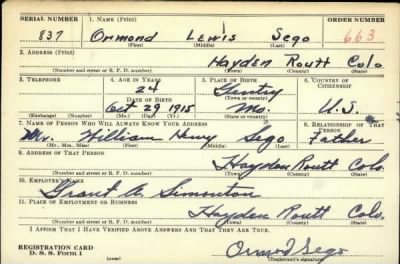 SERIAL NUMBER 1. NAME (Print) ORDER NUMBER
837 Ormond Lewis Sego 663
(First) (Middle) (Last)
2. ADDRESS (Print)
Hayden Routt Colo
(Number and street or R. F. D. number) (Town) (County) (State)
3. TELEPHONE 4. AGE IN YEARS 5. PLACE OF BIRTH 6. COUNTRY OF CITIZENSHIP
24 Gentry
DATE OF BIRTH (Town or county)
Oct 29 1915 Mo. U.S.
(Exchange) (Number) (Mo.) (Day) (Yr.) (State or country)
7. NAME OF PERSON WHO WILL ALWAYS KNOW YOUR ADDRESS 8. RELATIONSHIP OF THAT PERSON
Mr. William Henry Sego Father
(Mr., Mrs., Miss) (First) (Middle) (Last)
9. ADDRESS OF THAT PERSON
Hayden Routt Colo.
(Number and street or R. F. D. number) (Town) (County) (State)
10. EMPLOYER'S NAME
Grant Simonton
11. PLACE OF EMPLOYMENT OR BUSINESS
Hayden Routt Colo.
(Number and street or R. F. D. number) (Town) (County) (State)
I AFFIRM THAT I HAVE VERIFIED ABOVE ANSWERS AND THAT THEY ARE TRUE.
REGISTRATION CARD
D. S. S. Form 1 Ormond Sego
(Registrant's signature)